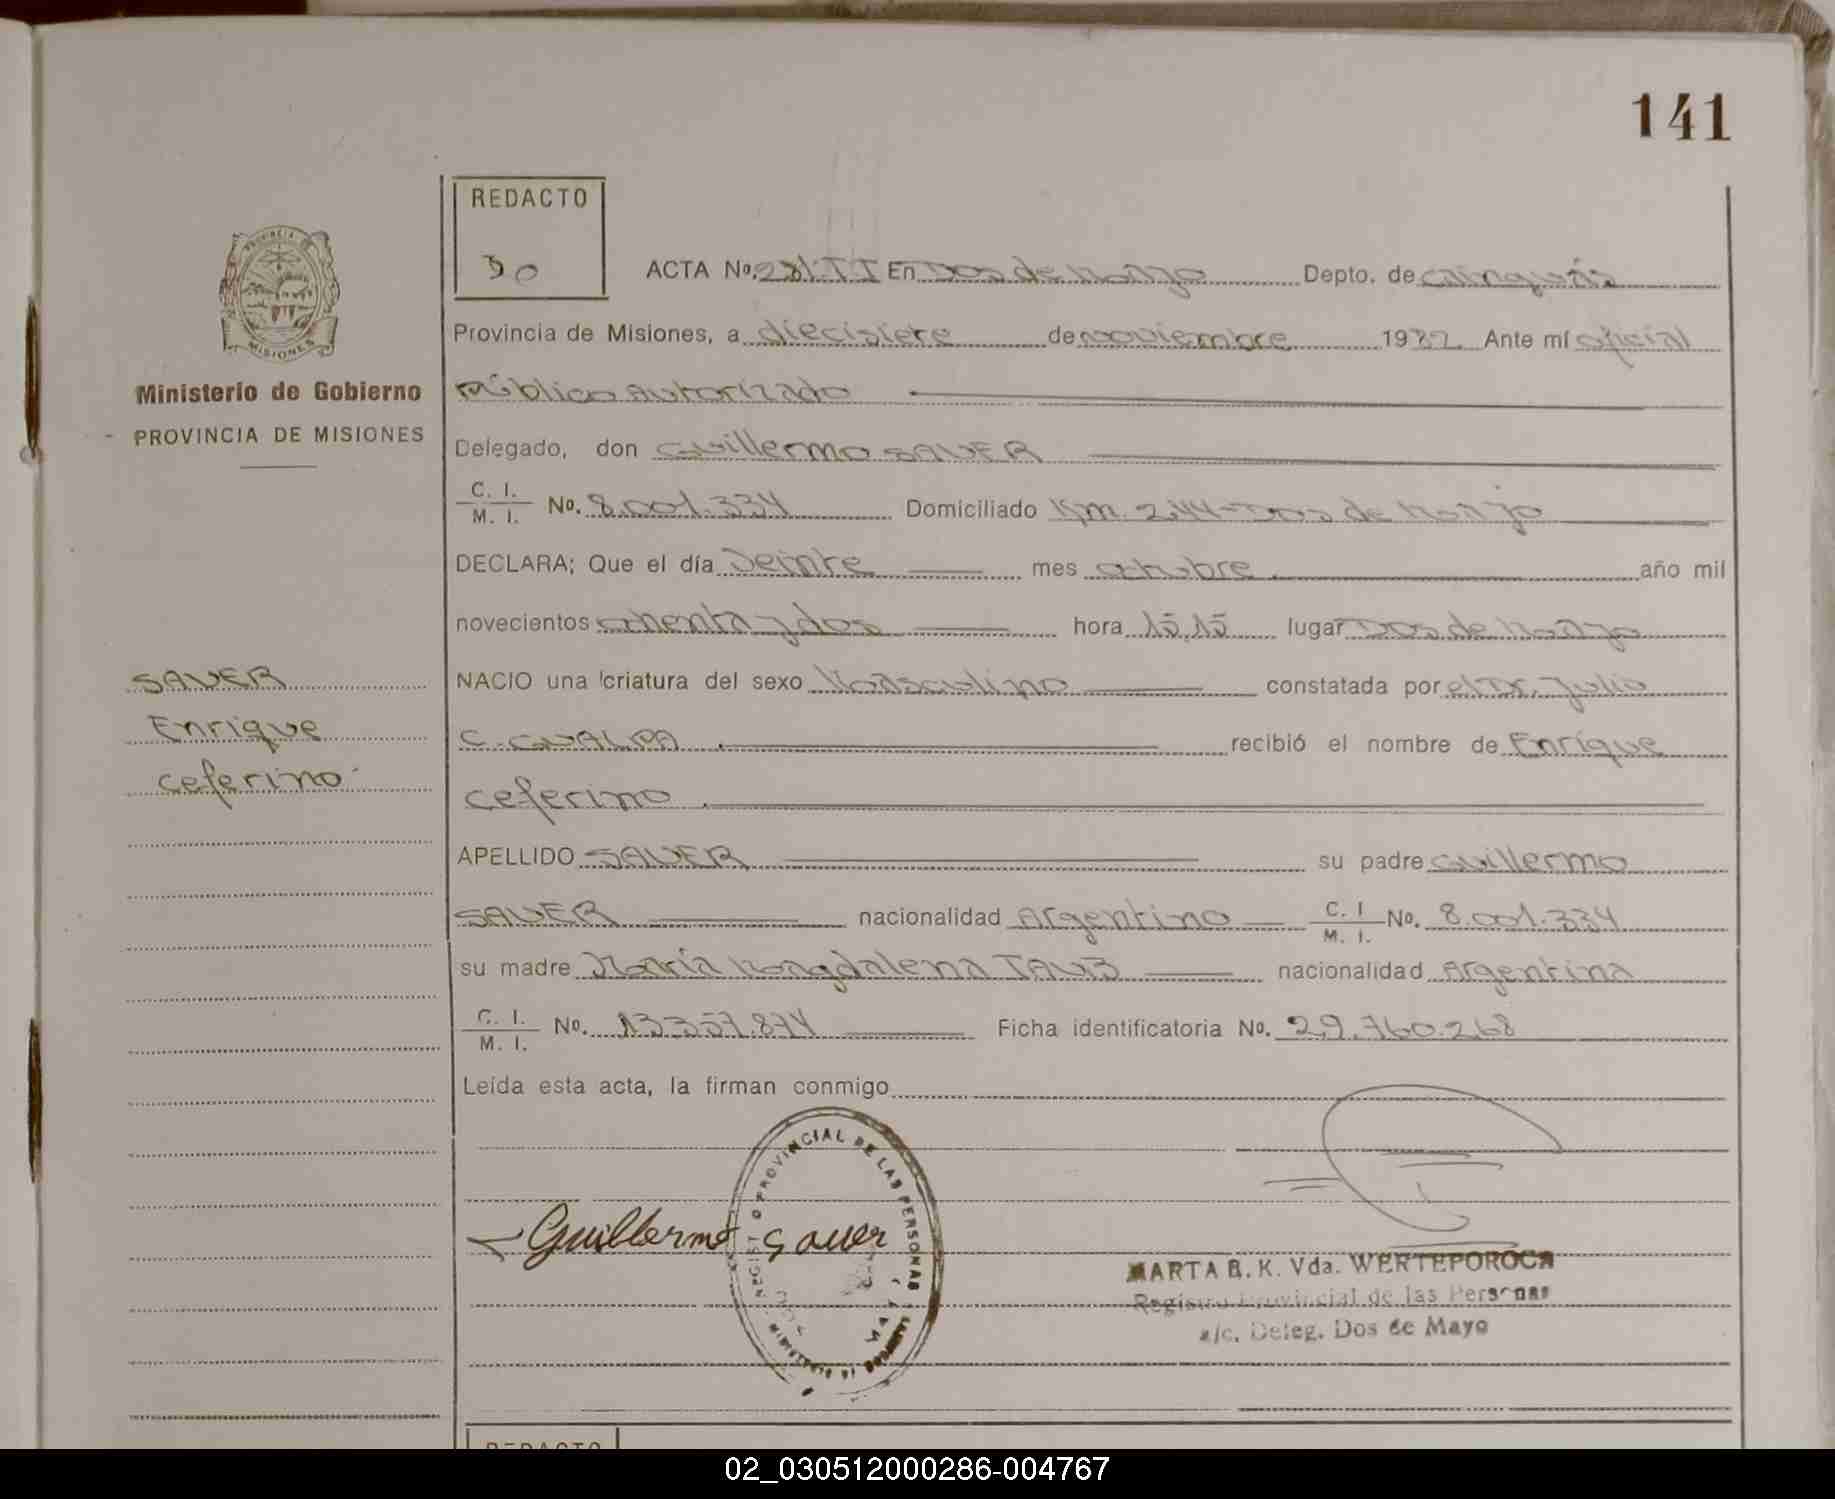 141
REDACTO
ACTA No. 281-II En Dos de Mayo Depto. de Cainguás
Provincia de Misiones, a diecisiete de noviembre 1982 Ante mí oficial
Público Autorizado
Ministerio de Gobierno
PROVINCIA DE MISIONES
MISIONES
Delegado, don Guillermo SAUER
C. I. M. I. No. 8.001.334 Domiciliado Km. 244-Dos de Mayo
DECLARA; Que el día Veinte mes octubre año mil
novecientos ochenta y dos hora 15,15 lugar Dos de Mayo
SAUER
Enrique
Ceferino
NACIO una criatura del sexo Masculino constatada por el Dr. Julio
C. GUALPA recibió el nombre de Enrique
Ceferino
APELLIDO SAUER su padre Guillermo
SAUER nacionalidad Argentino C. I M. I. No. 8.001.334
su madre María Magdalena TAUB nacionalidad Argentina
C. I. M. I. No. 13.357.874 Ficha identificatoria No. 29.760.268
Leída esta acta, la firman conmigo
PROVINCIAL DE LAS PERSONAS
Guillermo Sauer
MARTA B. K. Vda. WERTEPOROCH
Registro Provincial de las Personas
a/c. Deleg. Dos de Mayo
REDACTO
02_030512000286-004767